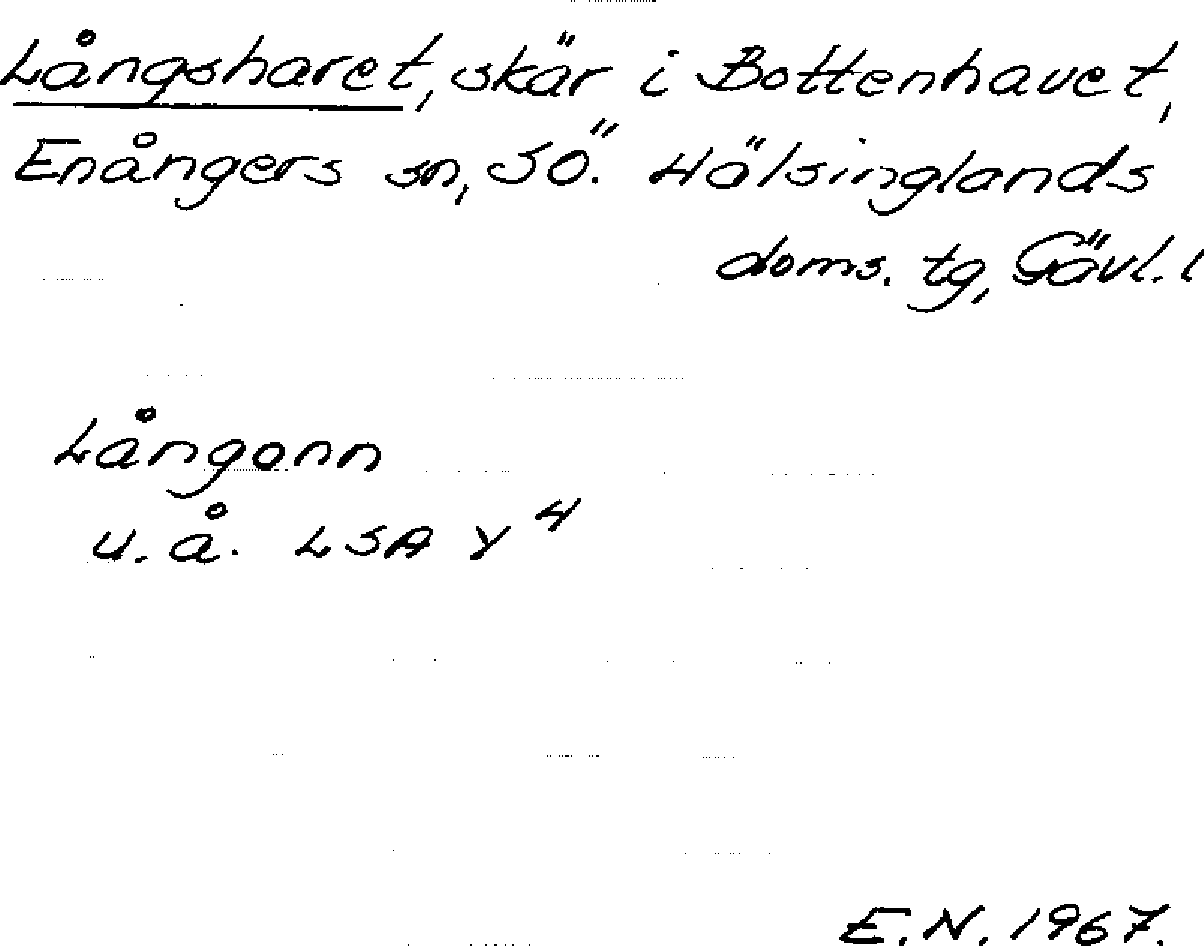 Långsharet, skär i Bottenhavet,
Enångers sn, SÖ. Hälsinglands
doms. tg, Gävl. l
Långonn
u. å. LSA Y 4
E. N. 1967.